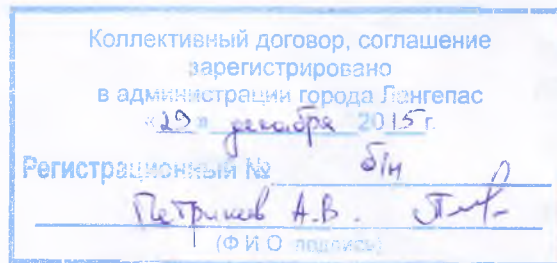 Коллективный договор, соглашение
зарегистрировано
в администрации города Лангепас
«29» декабря 2015 г.
Регистрационный № б/н
А.В.
(Ф И О подпись)